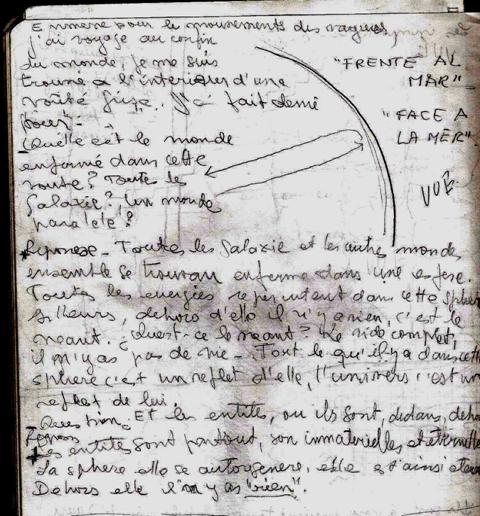 Emmené par le mouvements des vagues
j'ai voyagé au confin
du monde, je me suis
trouvé a l'interieur d'une
voûte fixe. J'a fait demi
tour. -
Quelle est le monde
enfermé dans cette
voute? Toute le
Galaxie? Un monde
paralele?
"FRENTE AL
MAR"
"FACE A
LA MER"
VUE
Reponse - Toutes les Galaxie et les autres mondes
ensemble se trouvan enferme dans une esfere.
Toutes les energies repercutent dans cette sphere
dehors d'elle il n'y a rien, c'est le
neant. ¿Quest-ce le neant? Le vide complet,
il n'y as pas de vie - Tout le qu'il y a dans cette
sphere c'est un reflet d'elle, l'univers c'est un
reflet de lui.
- Question. Et les entités, ou ils sont, dedans, dehors
Repons
Les entité sont partout, son immaterielles et eternelles
La sphere elle se autogenere, elle est ainsi eternel
Dehors elle il n y as "rien".